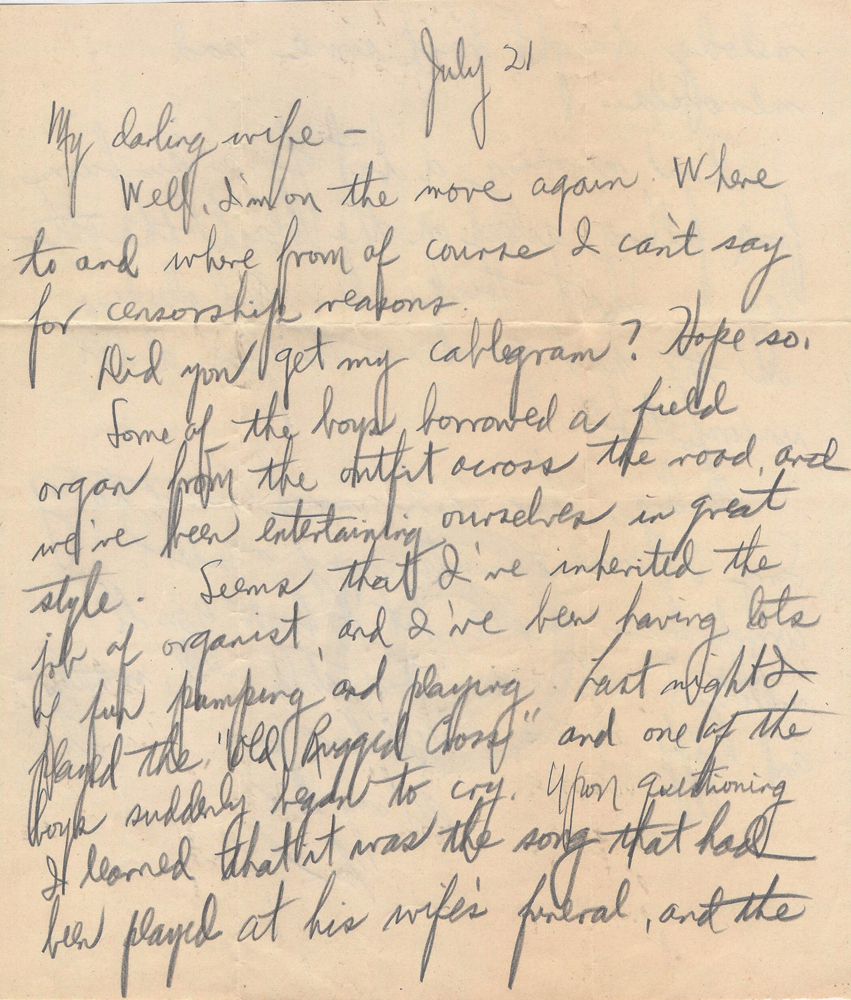 July 21
My darling wife –
Well, I'm on the move again. Where
to and where from of course I can't say
for censorship reasons.
Did you get my cablegram? Hope so.
Some of the boys borrowed a field
organ from the outfit across the road, and
we've been entertaining ourselves in great
style. Seems that I've inherited the
job of organist, and I've been having lots
of fun pumping and playing. Last night I
played the "Old Rugged Cross" and one of the
boys suddenly began to cry. Upon questioning
I learned that it was the song that had
been played at his wife's funeral, and the